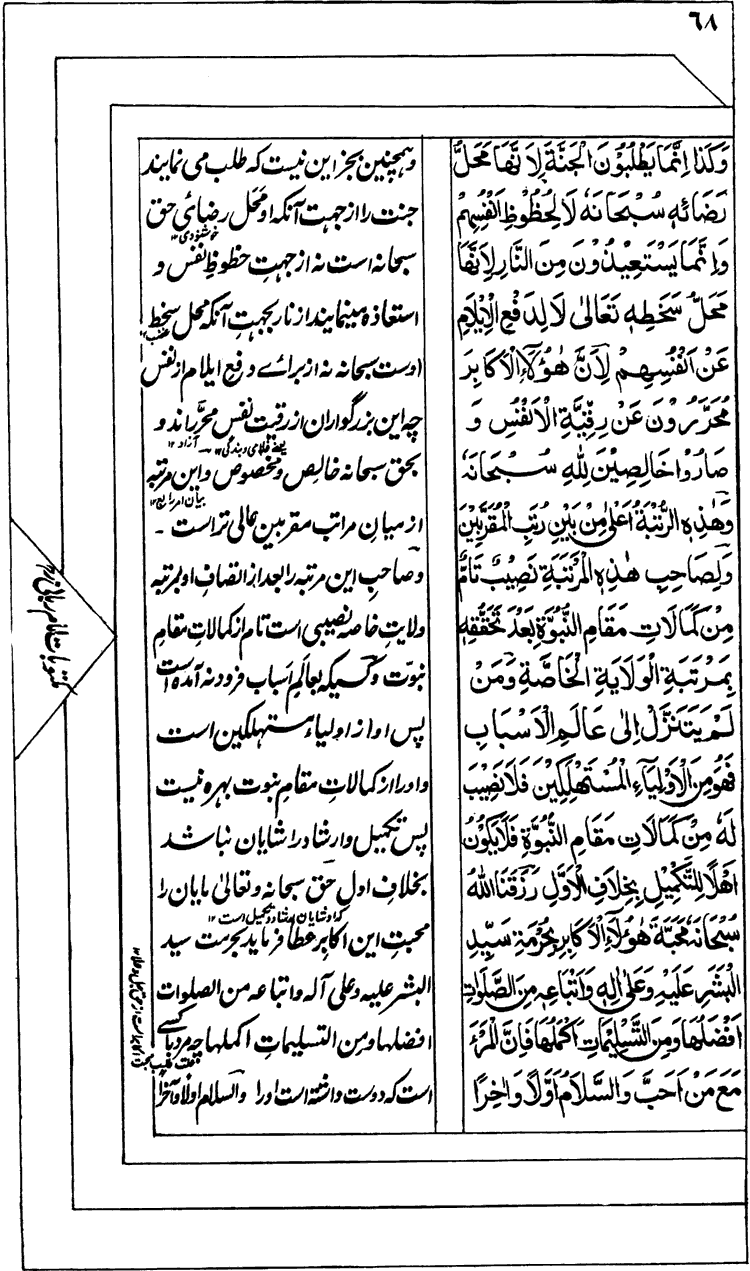 ٦٨
وَكَذَا اِنَّمَا يَطْلُبُوْنَ الْجَنَّةَ لِاَنَّهَا مَحَلُّ
رَضَائِهٖ سُبْحَانَهٗ لَا لِحُظُوْظِ اَنْفُسِهِمْ
وَاِنَّمَا يَسْتَعِيْذُوْنَ مِنَ النَّارِ لِاَنَّهَا
مَحَلُّ سَخَطِهٖ تَعَالٰى لَا لِدَفْعِ الْاِيْلَامِ
عَنْ اَنْفُسِهِمْ لِاَنَّ هٰؤُلَآءِ الْاَكَابِرَ
مُحَرَّرُوْنَ عَنْ رِقِّيَّةِ الْاَنْفُسِ وَ
صَارُوْا خَالِصِيْنَ لِلّٰهِ سُبْحَانَهٗ
وَهٰذِهِ الرُّتْبَةُ اَعْلٰى مِنْ بَيْنِ رُتَبِ الْمُقَرَّبِيْنَ
وَلِصَاحِبِ هٰذِهِ الْمَرْتَبَةِ نَصِيْبٌ تَامٌّ
مِنْ كَمَالَاتِ مَقَامِ النُّبُوَّةِ بَعْدَ تَحَقُّقِهٖ
بِمَرْتَبَةِ الْوَلَايَةِ الْخَاصَّةِ وَمَنْ
لَمْ يَتَنَزَّلْ اِلٰى عَالَمِ الْاَسْبَابِ
فَهُوَ مِنَ الْاَوْلِيَآءِ الْمُسْتَهْلِكِيْنَ فَلَا نَصِيْبَ
لَهٗ مِنْ كَمَالَاتِ مَقَامِ النُّبُوَّةِ فَلَا يَكُوْنُ
اَهْلًا لِلتَّكْمِيْلِ بِخِلَافِ الْاَوَّلِ رَزَقَنَا اللّٰهُ
سُبْحَانَهٗ مَحَبَّةَ هٰؤُلَآءِ الْاَكَابِرِ بِحُرْمَةِ سَيِّدِ
الْبَشَرِ عَلَيْهِ وَعَلٰى اٰلِهٖ وَاَتْبَاعِهٖ مِنَ الصَّلَوَاتِ
اَفْضَلُهَا وَمِنَ التَّسْلِيْمَاتِ اَكْمَلُهَا فَاِنَّ الْمَرْءَ
مَعَ مَنْ اَحَبَّ وَالسَّلَامُ اَوَّلًا وَاٰخِرًا
وہمچنین بجز این نیست کہ طلب می نمایند
جنت را از جہت آنکہ او محل رضائ حق
خوشنودی ١٢
سبحانہ است نہ از جہت حظوظِ نفس و
استعاذہ مینمایند از نار بجہتِ آنکہ محل سخط
غضب ١٢
اوست سبحانہ نہ از برائے دفع ایلام از نفس
چہ این بزرگواران از رقیت نفس محرّراند و
یعنے غلامی و بندگی ١٢
آزاد ١٢
بحق سبحانہ خالص و مخصوص و این مرتبہ
بیان امر رابع ١٢
از میانِ مراتب مقربین عالی تر است -
و صاحبِ این مرتبہ را بعد از اتصافِ او بمرتبہ
ولایتِ خاصہ نصیبی است تام از کمالاتِ مقامِ
نبوّت و کسیکہ بعالمِ اسباب فرود نہ آمدہ است
پس او از اولیاء مستہلکین است
و او را از کمالاتِ مقامِ نبوت بہرہ نیست
پس تکمیل و ارشاد را شایان نباشد
بخلافِ اول حق سبحانہ و تعالیٰ مایان را
کہ او شایان ارشاد و تکمیل است ١٢
محبتِ این اکابر عطا فرماید بحرمت سید
البشر علیہ و علی آلہ و اتباعہ من الصلوات
افضلها و من التسلیمات اکملها چہ مرد با کسے
است کہ دوست داشتہ است او را والسلام اولاً و آخراً
مکتوبات امام ربانی